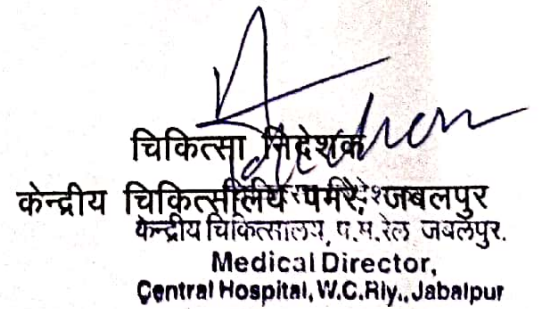 चिकित्सा निदेशक
केन्द्रीय चिकित्सालय पमरे, जबलपुर
केन्द्रीय चिकित्सालय, प.म.रेल जबलपुर.
Medical Director,
Central Hospital, W.C.Rly., Jabalpur